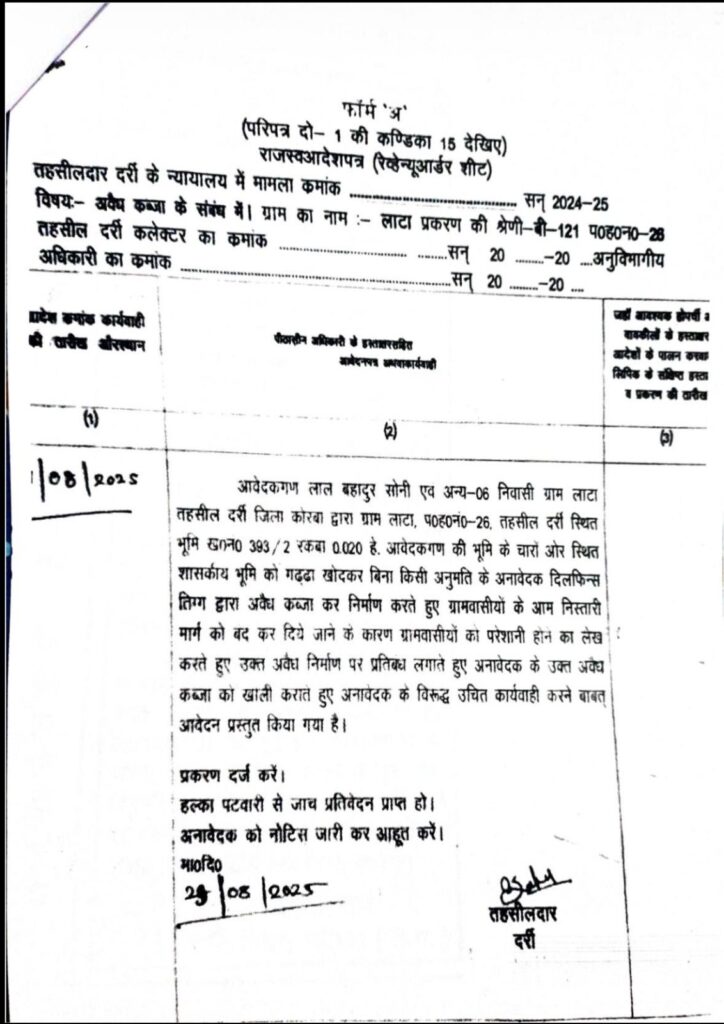 फॉर्म 'अ'
(परिपत्र दो- 1 की कण्डिका 15 देखिए)
राजस्वआदेशपत्र (रेव्हेन्यूआर्डर शीट)
तहसीलदार दर्री के न्यायालय में मामला कमांक .................... सन् 2024-25
विषय:- अवैध कब्जा के संबंध में। ग्राम का नाम :- लाटा प्रकरण की श्रेणी-बी-121 प0ह0न0-26
तहसील दर्री कलेक्टर का कमांक .................... ........सन् 20 ........-20 ....अनुविभागीय
अधिकारी का कमांक ....................सन् 20 ........-20 ....
आदेश कमांक कार्यवाही
की तारीख औरस्थान
पीठासीन अधिकारी के हस्ताक्षरसहित
आवेदनपत्र अथवाकार्यवाही
जहाँ आवश्यक हो
वाकीलों के हस्ताक्षर
आदेशों के पालन
लिपिक के संक्षिप्त हस्ता
व प्रकरण की तारीख
(1)
(2)
(3)
/08/2025
आवेदकगण लाल बहादुर सोनी एव अन्य-06 निवासी ग्राम लाटा
तहसील दर्री जिला कोरबा द्वारा ग्राम लाटा, प0ह0नं0-26, तहसील दर्री स्थित
भूमि ख0न0 393/2 रकबा 0.020 है. आवेदकगण की भूमि के चारों ओर स्थित
शासकीय भूमि को गढ्ढा खोदकर बिना किसी अनुमति के अनावेदक दिलफिन्स
तिग्ग द्वारा अवैध कब्जा कर निर्माण करते हुए ग्रामवासीयों के आम निस्तारी
मार्ग को बंद कर दिये जाने के कारण ग्रामवासीयों को परेशानी होने का लेख
करते हुए उक्त अवैध निर्माण पर प्रतिबंध लगाते हुए अनावेदक के उक्त अवैध
कब्जा को खाली कराते हुए अनावेदक के विरूद्ध उचित कार्यवाही करने बाबत्
आवेदन प्रस्तुत किया गया है।
प्रकरण दर्ज करें।
हल्का पटवारी से जाच प्रतिवेदन प्राप्त हो।
अनावेदक को नोटिस जारी कर आहूत करें।
मा0दि0
/08/2025
तहसीलदार
दर्री